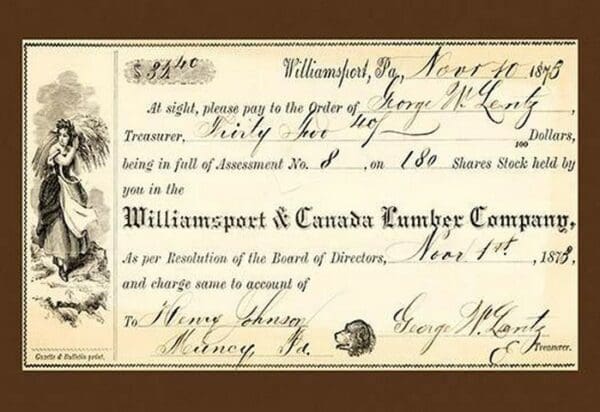 $32 40
Williamsport, Pa., Novr 10 1873
At sight, please pay to the Order of George W. Lentz,
Treasurer, Thirty Two 40/100 Dollars,
being in full of Assessment No. 8, on 180 Shares Stock held by
you in the
Williamsport & Canada Lumber Company,
As per Resolution of the Board of Directors, Novr 1st, 1873,
and charge same to account of
To Henry Johnson
Muncy, Pa.
George W. Lentz
Treasurer.
Gazette & Bulletin print.